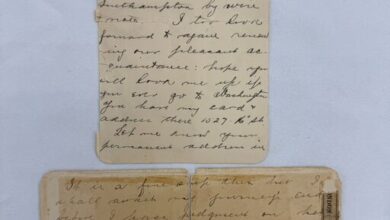 Southampton by wire
+ note. I too look
forward to again renew
ing our pleasant ac-
quaintance: hope you
will look me up if
you ever go to Washington
You have my card &
address there 1027 16" St
Let me know your
permanent address in
It is a fine ship this but I
shall await my journey's end
judgment on